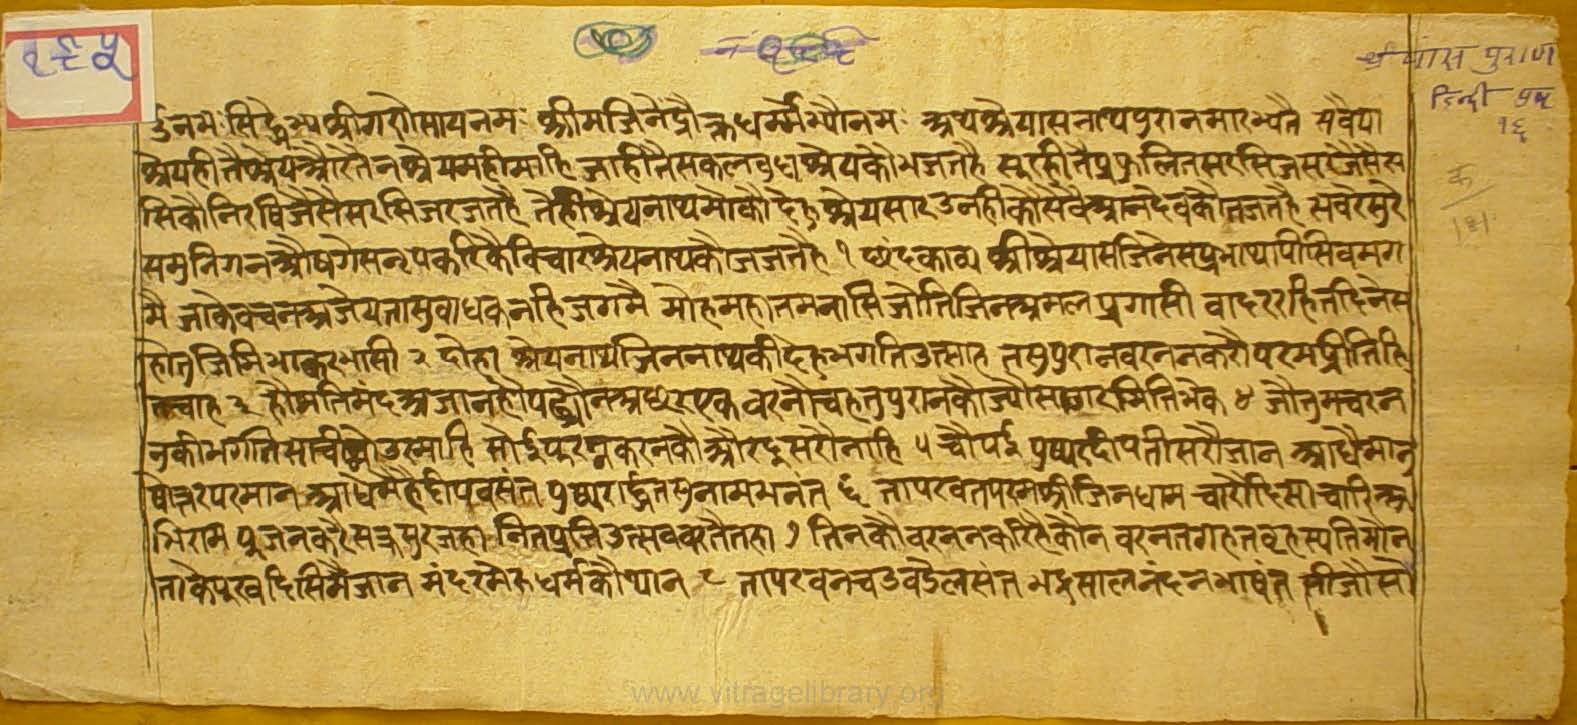 १६५
श्रेयांस पुराण
हिन्दी पद्य
१६
र्द०नमः सिद्धेभ्यः श्रीगणेसायनमः श्रीमजिनेंद्रोक्तधर्म्मेभ्योनमः अथश्रेयासनाथपुरानमारभ्यते सवैया
श्रेयहीतैश्रेयऔरतैनश्रेयमहीमाहि जाहीतैसकलबुधश्रेयकौभजतहै सूरहीतैप्रफुलितसरसिजसरजैसैस
सिकौनिरषिजैसैसरसिजरजतहै तैहीश्रेयनाथमोकौदेहुश्रेयसारउनहीकौसेवैआनदेवकौतजतहै सबरेसुरे
समुनिगनऔषगेसनृपकरिकैविचारश्रेयनाथकौजजतहै १ छंदकाव्य श्रीश्रेयासजिनेसप्रभाथापीसिवमग
मै जाकेवचनअजेयतासुबाधकनहिजगमै मोहमहातमनासिजोतिजिनअमलप्रगासी वादररहितदिनेस
होतजिमिभाकरभासी २ दोहा श्रेयनाथजिननाथकीदेहुभगतिउत्साह तसुपुरानवरननकरौपरमप्रीतिहि
तचाह ३ हौमतिमंदअजानहौपढ्यौनअछरएक वरनौचहतुपुरानकौज्यौसागरमितिभेक ४ जौतुमचरन
नकीभगतिसाचीहोउरमाहि सोईपूरनकरनकौऔरदूसरौनाहि ५ चौपई पुष्करदीपतीसरौजान आधैमानु
षोत्तरपरमान आधेमैहैदीपवसंत पुष्करार्द्धतसुनामभनंत ६ तापरवतपरमश्रीजिनधाम चारौदिसाचारिअ
भिराम पूजनकरैसक्रसुरजहा नितप्रतिउत्सववरतैतहा ७ तिनकौवरननकरिहैकौन वरनतगहतवृहस्पतिमौन
ताकेपूरवदिसिमैजान मंदरमेरुधर्मकौथान ८ तापरवनचउवडेलसंत भद्रसालनंदनभाषंत तीजौसो
www.vitragelibrary.org